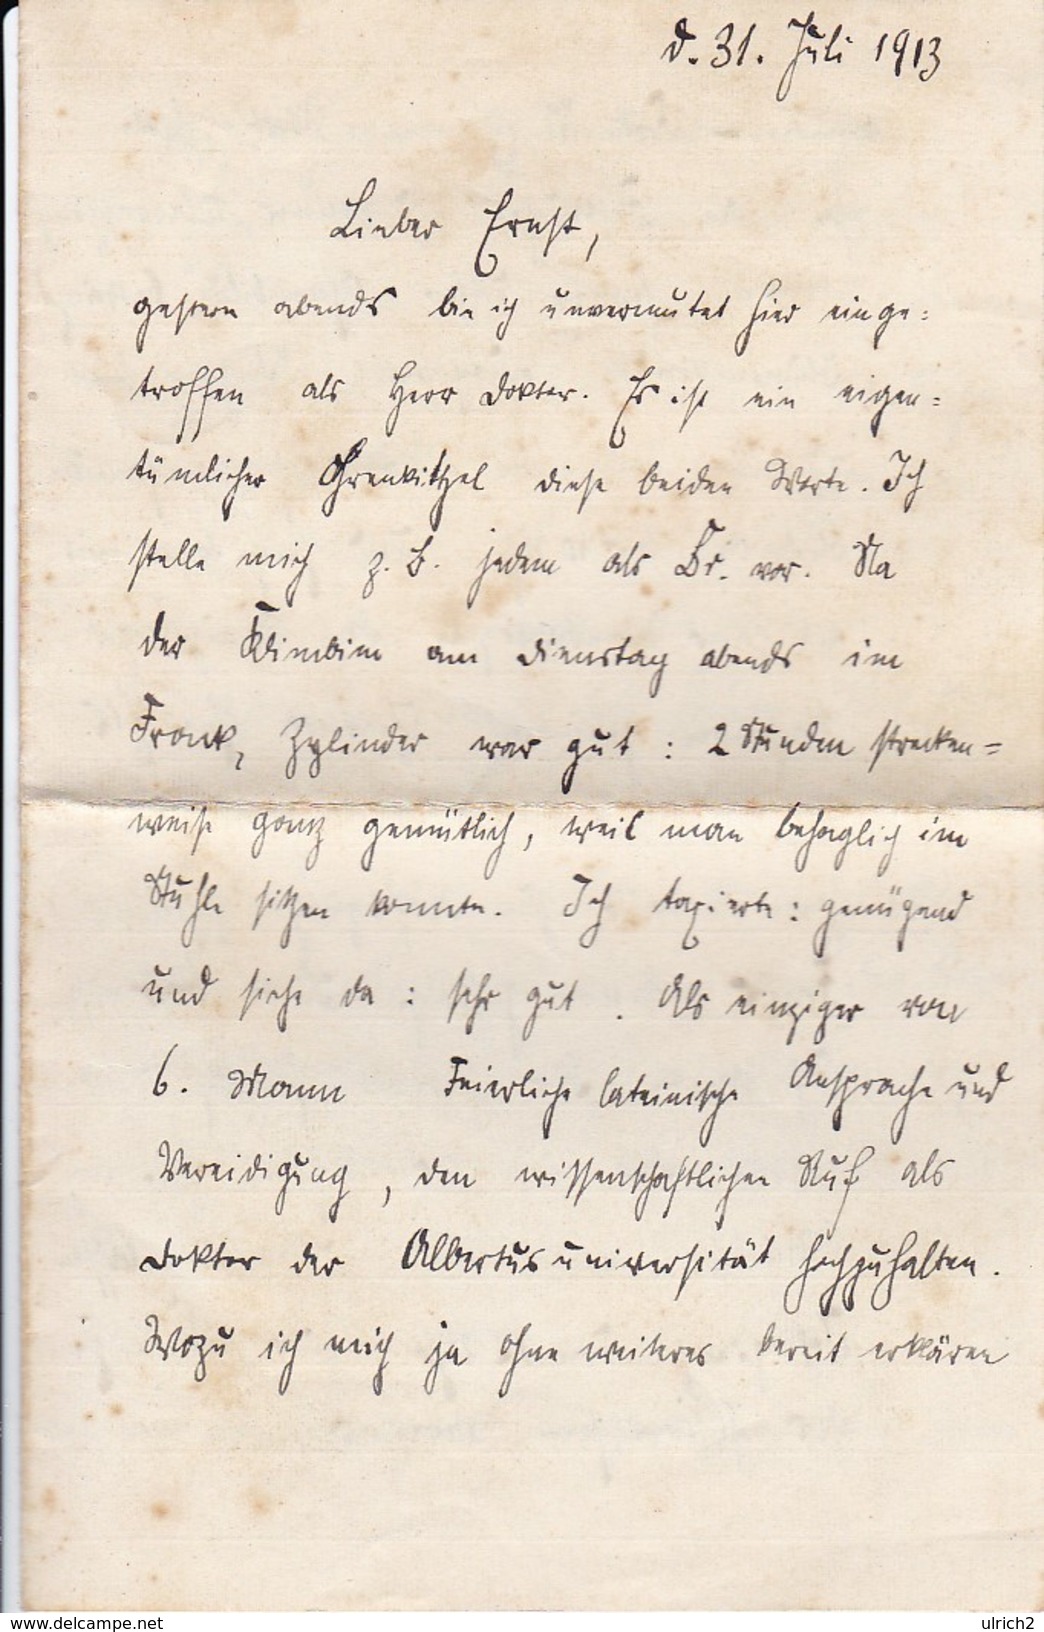 d. 31. Juli 1913
Lieber Ernst,
gestern abends bin ich unvermutet hier einge=
troffen als Herr Doktor. Es ist ein eigen=
tümlicher Ohrenkitzel diese beiden Worte. Ich
stelle mich z. B. jedem als Dr. vor. Na
der Klimbim am Dienstag abends im
Frack, Zylinder war gut : 2 Stunden strecken=
weise ganz gemütlich, weil man behaglich im
Stuhle sitzen konnte. Ich taxierte : genügend
und siehe da : sehr gut. Als einziger von
6. Mann Feierliche lateinische Ansprache und
Vereidigung, den wissenschaftlichen Ruf als
Doktor der Albertusuniversität hochzuhalten.
Wozu ich mich ja ohne weiteres bereit erkläre
www.delcampe.net
ulrich2